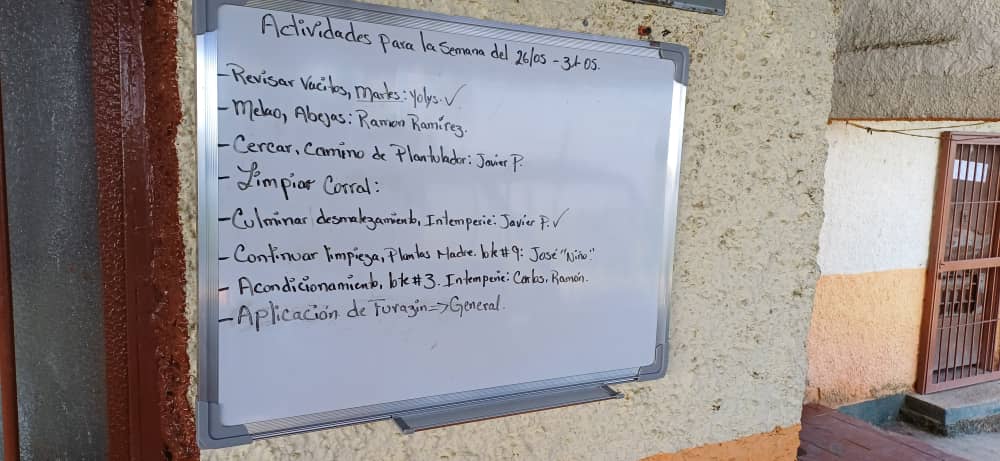 Actividades para la Semana del 26/05 - 31-05.
- Revisar Vacitos, Martes: Yolys. ✓
- Melao, Abejas: Ramon Ramírez.
- Cercar, Camino de Plantulador: Javier P.
- Limpiar Corral:
- Culminar desmalezamiento, Intemperie: Javier P. ✓
- Continuar limpieza, Plantas Madre. lote #9: José "Niño"
- Acondicionamiento, lote #3. Intemperie: Carlos, Ramón.
- Aplicación de Furazin => General.